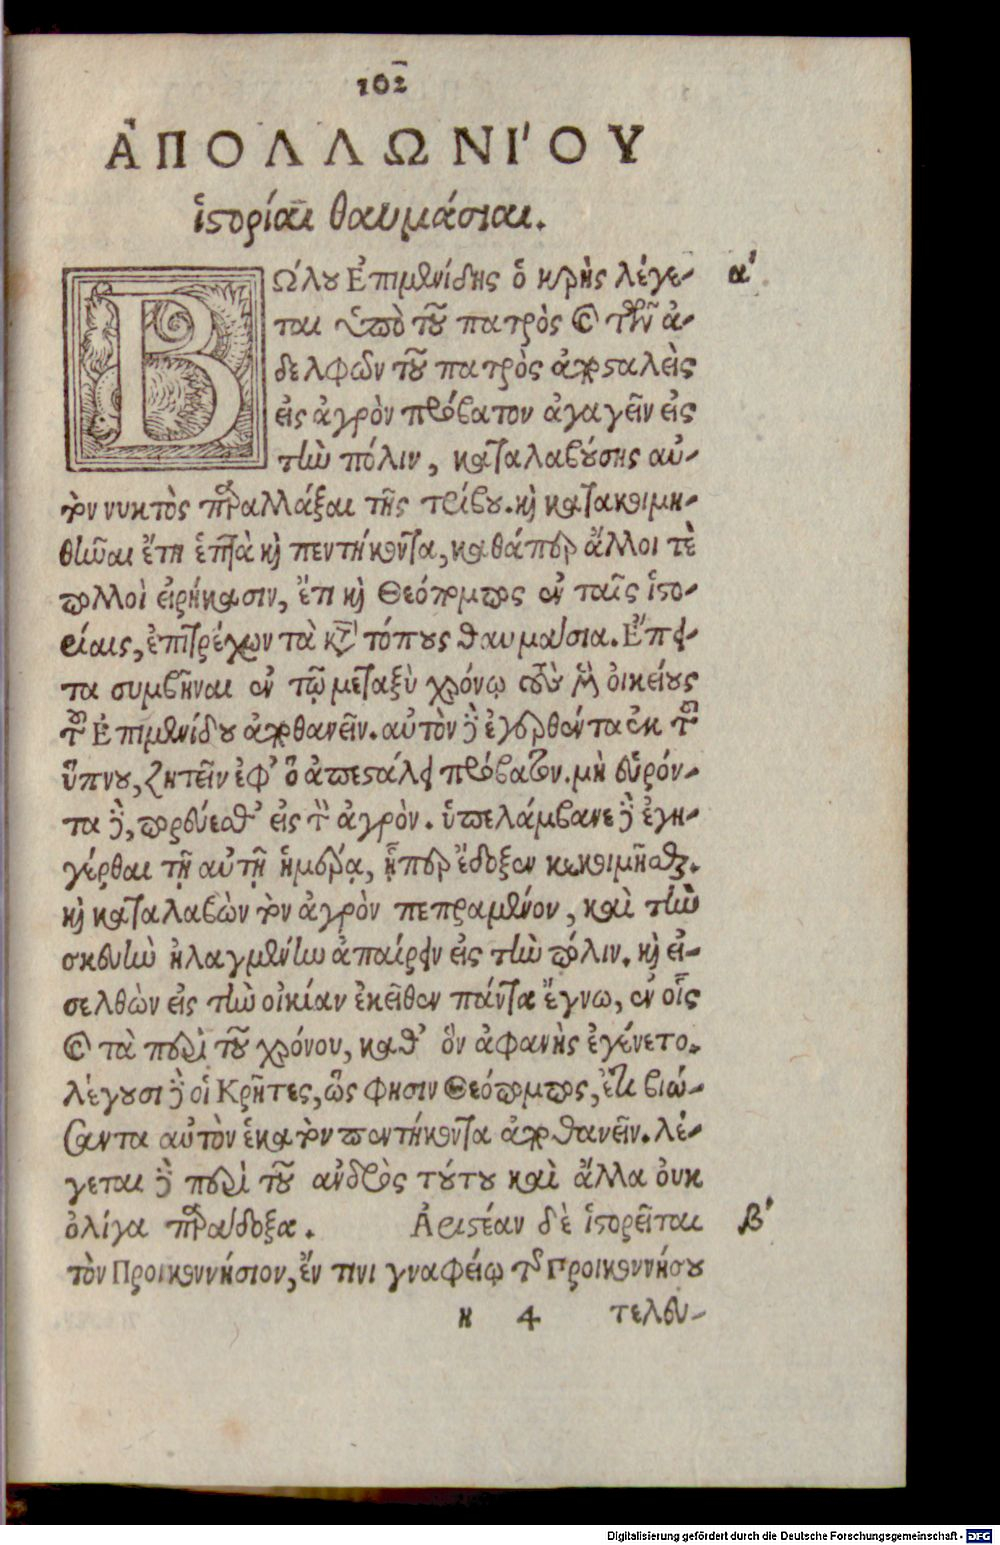 102
ἈΠΟΛΛΩΝΊΟΥ
ἱστορίαι θαυμάσιαι.
ΒΩ´λου Ἐπιμενίδης ὁ κρὴς λέγε- α'
ται ὑπὸ τοῦ πατρὸς καὶ τῶν ἀ-
δελφῶν τοῦ πατρὸς ἀποσταλεὶς
εἰς ἀγρὸν πρόβατον ἀγαγεῖν εἰς
τὴν πόλιν, καταλαβούσης αὐ-
τὸν νυκτὸς παραλλάξαι τῆς τρίβου. καὶ κατακοιμη-
θῆναι ἔτη ἑπτὰ καὶ πεντήκοντα, καθάπερ ἄλλοι τὲ
πολλοὶ εἰρήκασιν, ἔτι καὶ Θεόπομπος ἐν ταῖς ἱστο-
ρίαις, ἐπιτρέχων τὰ κατὰ τόπους θαυμάσια. Ἔπει-
τα συμβῆναι ἐν τῷ μεταξὺ χρόνῳ τοὺς μὲν οἰκείους
τοῦ Ἐπιμενίδου ἀποθανεῖν. αὐτὸν δὲ ἐγερθέντα ἐκ τοῦ
ὕπνου, ζητεῖν ἐφ' ὃ ἀπεστάλη πρόβατον. μὴ εὑρόν-
τα δὲ, πορεύεσθ' εἰς τὸν ἀγρὸν. ὑπελάμβανε δὲ ἐγη-
γέρθαι τῇ αὐτῇ ἡμέρᾳ, ᾗπερ ἔδοξεν κεκοιμῆσθαι.
καὶ καταλαβὼν τὸν ἀγρὸν πεπραμένον, καὶ τὴν
σκευὴν ἠλαγμένην ἀπαίρειν εἰς τὴν πόλιν. καὶ εἰ-
σελθὼν εἰς τὴν οἰκίαν ἐκεῖθεν πάντα ἔγνω, ἐν οἷς
καὶ τὰ περὶ τοῦ χρόνου, καθ' ὃν ἀφανὴς ἐγένετο.
λέγουσι δὲ οἱ Κρῆτες, ὥς φησιν Θεόπομπος, ἔτι βιώ-
σαντα αὐτὸν ἑκατὸν πεντήκοντα ἀποθανεῖν. λέ-
γεται δὲ περὶ τοῦ ἀνδρὸς τούτου καὶ ἄλλα οὐκ
ὀλίγα παράδοξα. Ἀριστέαν δὲ ἱστορεῖται β'
τὸν Προικοννήσιον, ἔν τινι γναφείῳ τῆς Προικοννήσου
κ 4 τελευ-
Digitalisierung gefördert durch die Deutsche Forschungsgemeinschaft - DFG